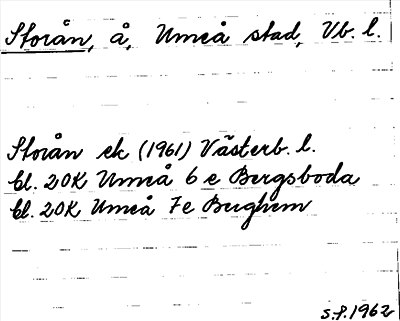 Storån, å, Umeå stad, Vb. l.
Storån ek (1961) Västerb. l.
bl. 20K Umeå 6 e Bergsboda
bl. 20K Umeå 7e Berghem
s.f. 1962